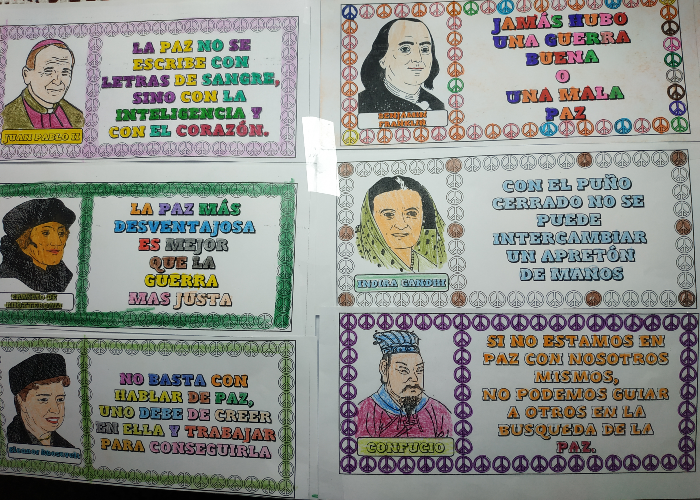 LA PAZ NO SE
ESCRIBE CON
LETRAS DE SANGRE,
SINO CON LA
INTELIGENCIA Y
CON EL CORAZÓN.
JUAN PABLO II
JAMÁS HUBO
UNA GUERRA
BUENA
O
UNA MALA
PAZ
BENJAMIN
FRANKLIN
LA PAZ MÁS
DESVENTAJOSA
ES MEJOR
QUE LA
GUERRA
MAS JUSTA
CON EL PUÑO
CERRADO NO SE
PUEDE
INTERCAMBIAR
UN APRETÓN
DE MANOS
INDIRA GANDHI
NO BASTA CON
HABLAR DE PAZ,
UNO DEBE DE CREER
EN ELLA Y TRABAJAR
PARA CONSEGUIRLA
SI NO ESTAMOS EN
PAZ CON NOSOTROS
MISMOS,
NO PODEMOS GUIAR
A OTROS EN LA
BUSQUEDA DE LA
PAZ.
CONFUCIO